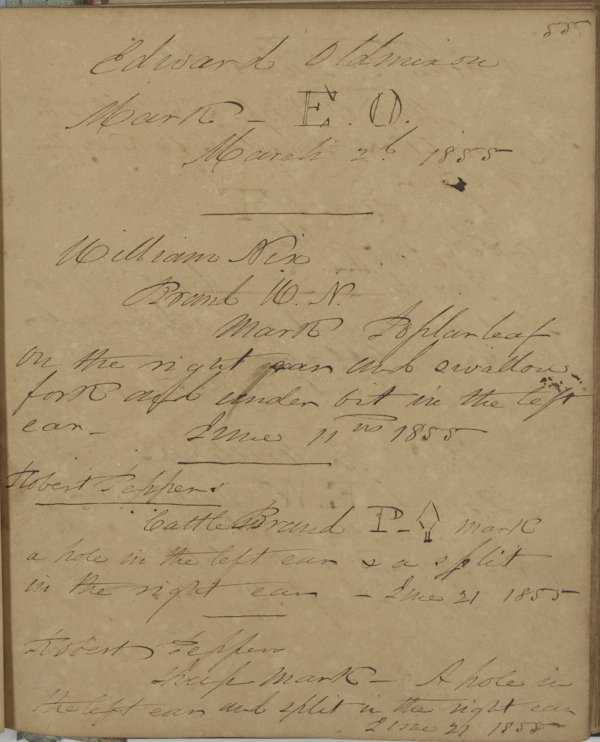 55
Edward Oldmixon
Mark - E. O.
March 2d 1855
William Nix
Brand W. N.
Mark Poplar leaf
on the right ear and swallow
fork and under bit in the left
ear - June 11th 1855
Robert Peppers
Cattle Brand P- mark
a hole in the left ear & a split
in the right ear - June 21 1855
Robert Pepper
Sheep Mark - A hole in
the left ear and split in the right ear
June 21 1855